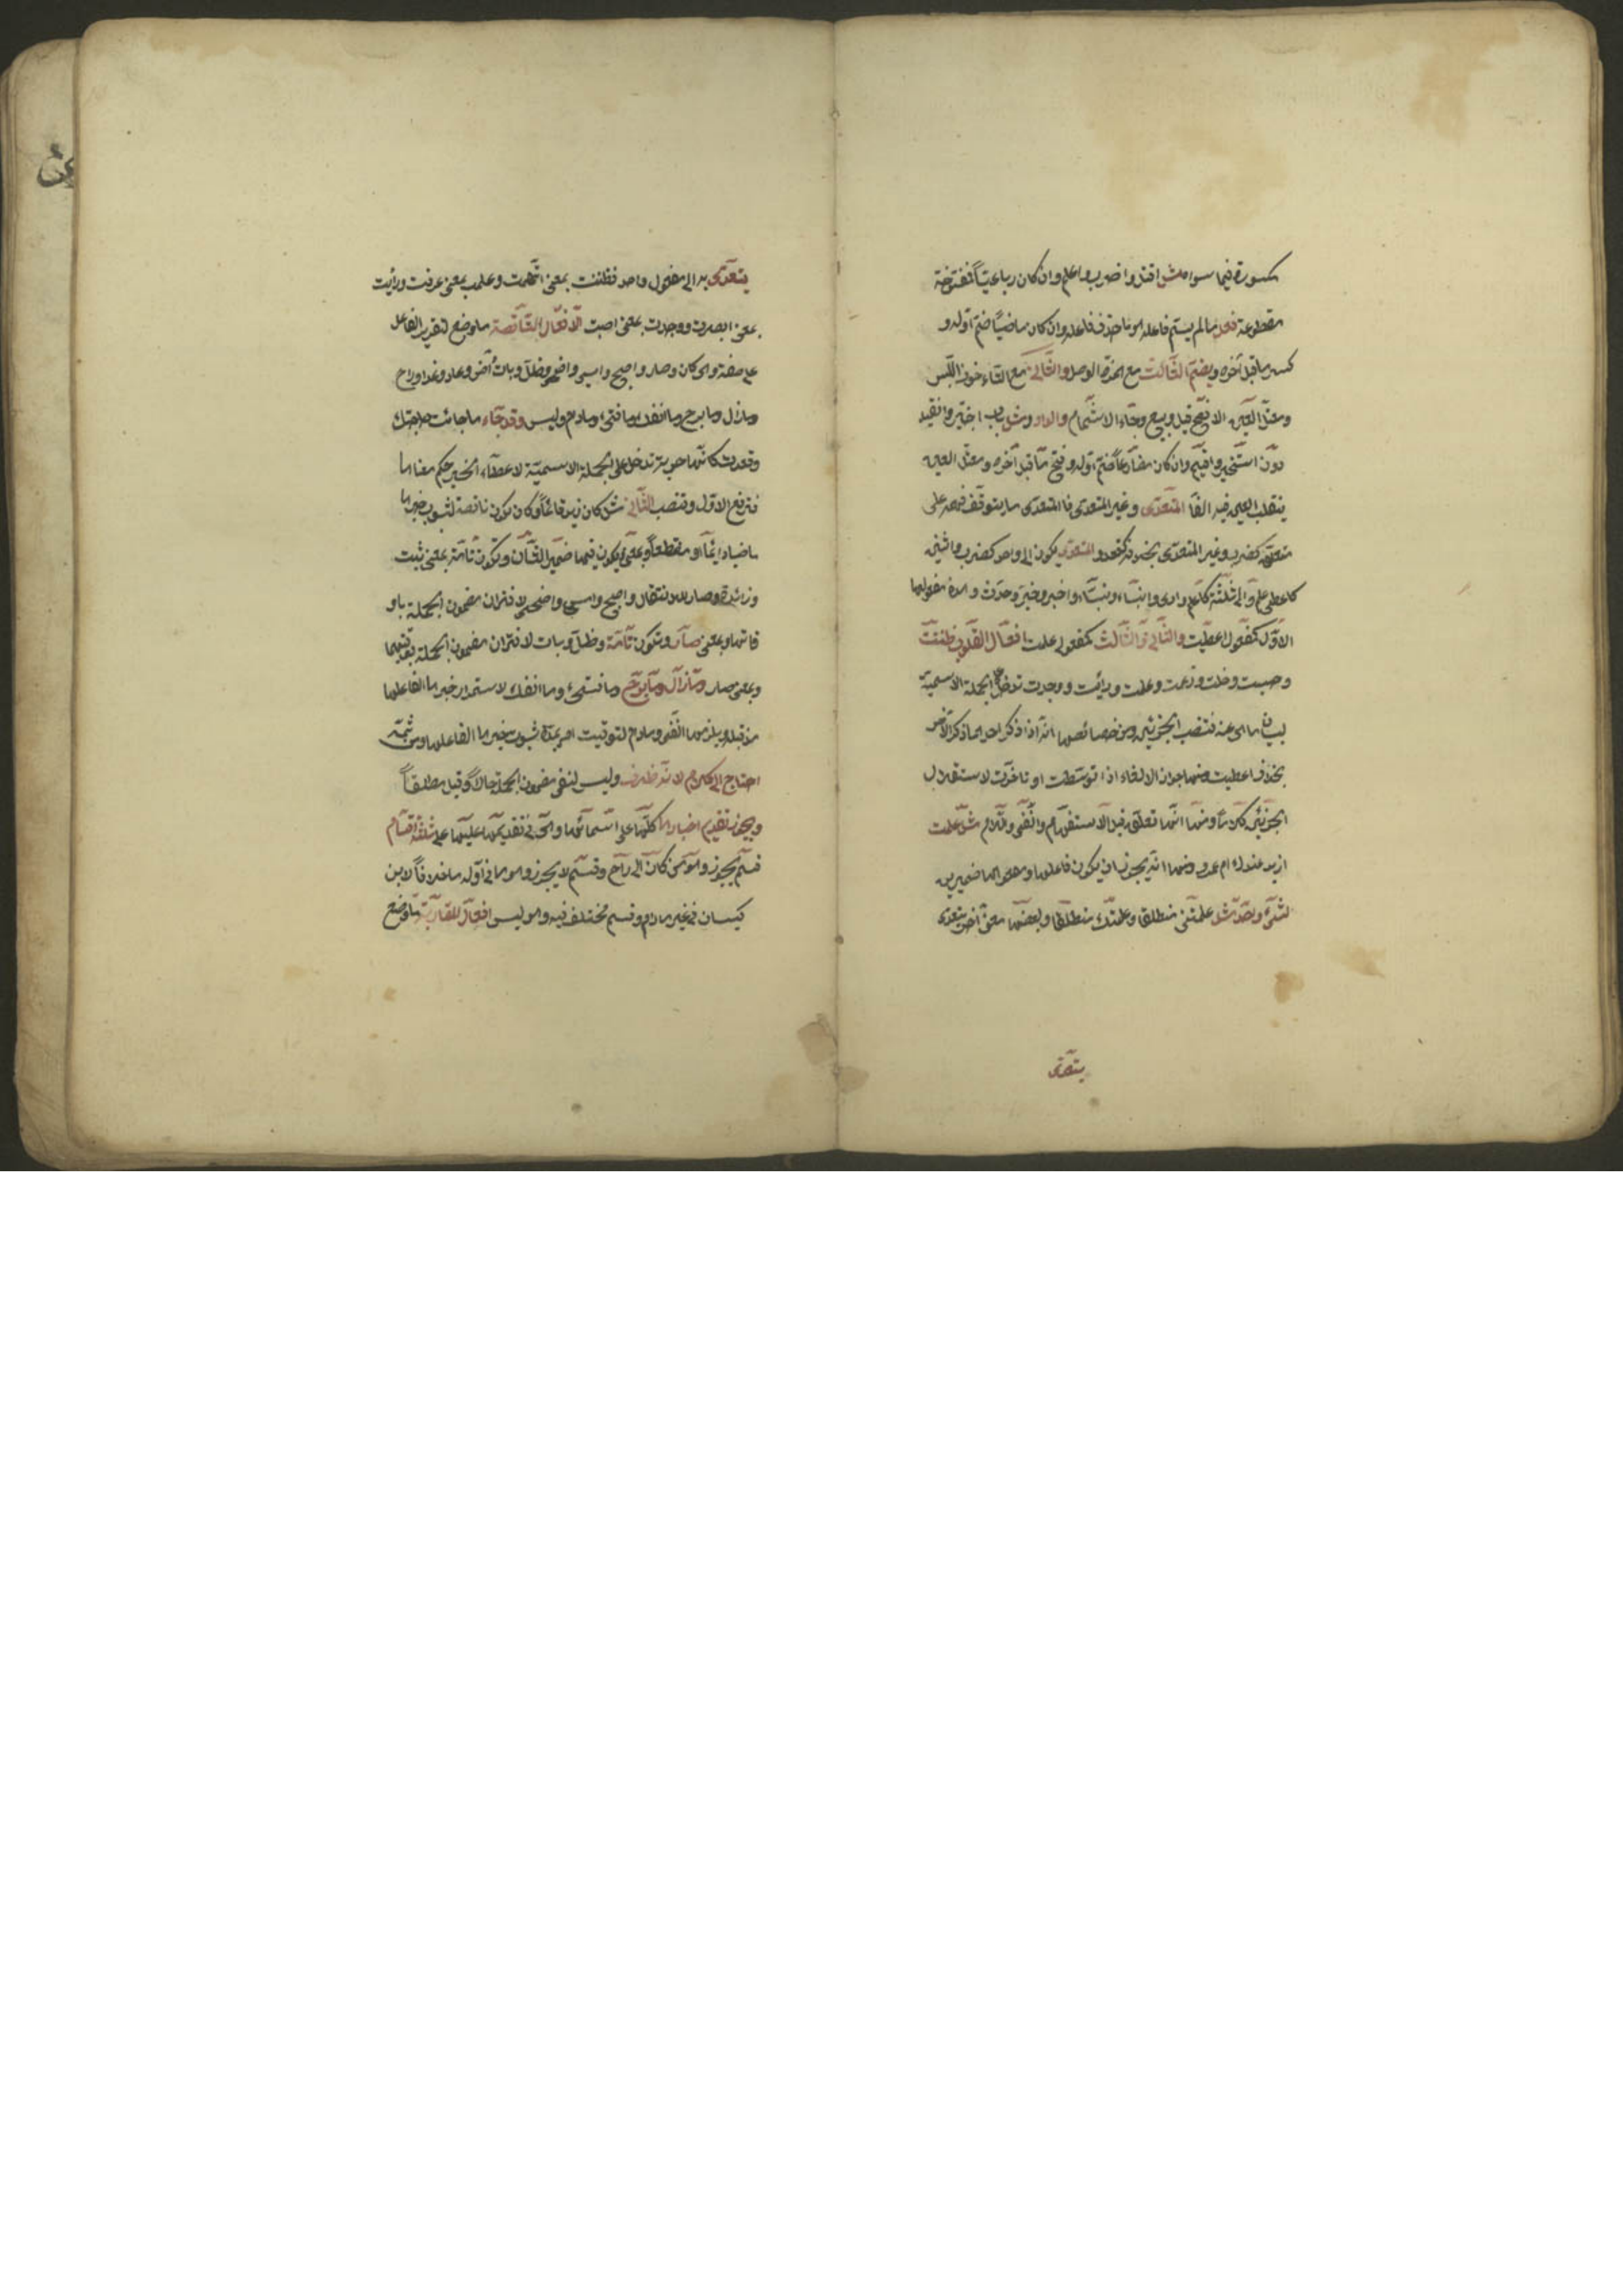 مكسورة فيما سواه مثل اقتل واضرب واعلم وان كان رباعيّاً فمفتوحة
مقطوعة فعل ما لم يسمّ فاعله هو ما حذف فاعله وان كان ماضياً ضمّ اوّله و
كسر ما قبل آخره ويضمّ الثّالث مع همزة الوصل والثّاني مع التّاء خوف اللّبس
ومعتلّ العين الافصح قيل وبيع وجاء الاشمام والواو ومثل باب اختير وانقيد
دون استخير واقيم وان كان مضارعاً ضمّ اوّله وفتح ما قبل آخره ومعتلّ العين
ينقلب العين فيه الفا المتعدّى وغير المتعدى فالمتعدى ما يتوقّف فهمه على
متعلّقه كضرب وغير المتعدّى بخلافه كقعد والمتعدّى يكون الى واحد كضرب واثنين
كاعطى وعلم والى ثلثة كاعلم وارى وانبّاء ونبّاء واخبر وخبّر وحدّث وهذه مفعولها
الاوّل كمفعول اعطيت والثّاني والثّالث كمفعولي علمت افعال القلوب ظننت
وحسبت وخلت وزعمت وعلمت ورأيت ووجدت تدخل على الجملة الاسميّة
لبيان ما هي عنه فتنصب الجزئين ومن خصائصها انّه اذا ذكر احدهما ذكر الآخر
بخلاف اعطيت ومنها جواز الالغاء اذا توسّطت او تاخرّت لاستقلال
الجزئين كلاماً ومنها انّها تعلّق قبل الاستفهام والنّفى واللّام مثل علمت
ازيد عندك ام عمرو ومنها انّه يجوز ان يكون فاعلها ومفعولها ضميرين
لشئ واحد مثل علمتنى منطلقا وعلمتك منطلقا ولبعضها معنى آخر يتعدى
يتعدّى
يتعدّى به الى مفعول واحد فظننت بمعنى اتّهمت وعلمت بمعنى عرفت ورأيت
بمعنى ابصرت ووجدت بمعنى اصبت الافعال النّاقصة ما وضع لتقرير الفاعل
على صفة وهى كان وصار واصبح وامسى واضحى وظلّ وبات وآض وعاد وغدا وراح
وما زال وما برح وما انفك وما فتئ وما دام وليس وقد جاء ما جائت حاجتك
وقعدت كانّها حربة تدخل على الجملة الاسميّة لاعطاء الخبر حكم معناها
فترفع الاوّل وتنصب الثّاني مثل كان زيد قائماً وكان يكون ناقصة لثبوت خبرها
ماضيا دائماً او منقطعاً وبمعنى صار ويكون فيها ضمير الشّان وتكون تامّة بمعنى ثبت
وزائدة وصار للانتقال واصبح وامسى واضحى لاقتران مضمون الجملة باو
قاتها وبمعنى صار وتكون تامّة وظلّ وبات لاقتران مضمون الجملة بوقتيهما
وبمعنى صار وما زال وما برح وما فتئ وما انفك لاستمرار خبرها لفاعلها
مذ قبله ويلزمها النّفى وما دام لتوقيت امر بمدّة ثبوت خبرها لفاعلها ومن ثمّه
احتاج الى كلام لانّه ظرف وليس لنفى مضمون الجملة حالاً وقيل مطلقاً
ويجوز تقديم اخبارها كلّها على اسمائها وهى فى تقديمها عليها على ثلثة اقسام
قسم يجوز وهو من كان الى راح وقسم لا يجوز وهو ما فى اوّله ما خلافاً لابن
كيسان فى غير ما دام وقسم مختلف فيه وهو ليس افعال المقاربة ما وضع